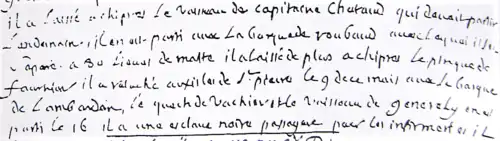 il a laissé a chipres le vaisseau de capitaine Chataud qui devait partir
Lendemain, il en est parti avec La barque de roubaud avec Lequel il s'est
séparé a 30 Lieues de malte il a laissé de plus a chipres le pinque de
fournier il a relaché aux isles de St pierre le 9 dece mais avec La barque
de Lambardon, le quech de vachier et le vaisseau de generety en est
parti le 16 il a une esclave noire passagere pour les infirmeries il